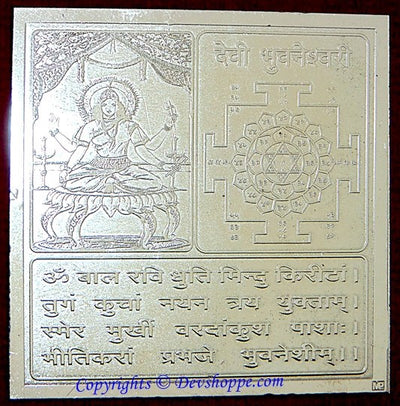 देवी भुवनेश्वरी
ॐ बाल रवि धुति भिन्दु किरींठां।
तुगं कुचां नयन त्रय युक्ताम्।
स्मेर मुखीं वरदांकुश पाशाः।
भीतिकरां प्रभजे भुवनेशीम्।।
Copyrights © Devshoppe.com